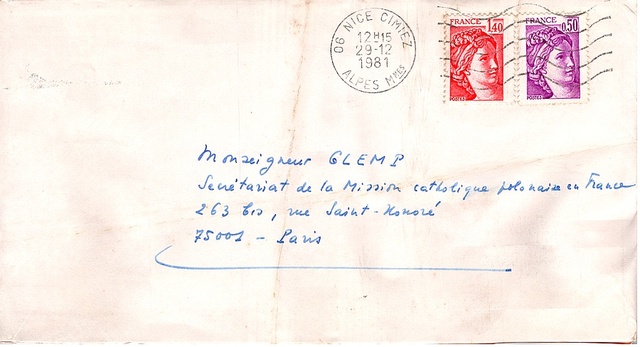 06 NICE CIMIEZ
12H15
29-12
1981
ALPES Mmes
FRANCE 1,40
POSTES
FRANCE 0,50
POSTES
Monseigneur GLEMP
Secrétariat de la Mission catholique polonaise en France
263 bis, rue Saint-Honoré
75001 - Paris